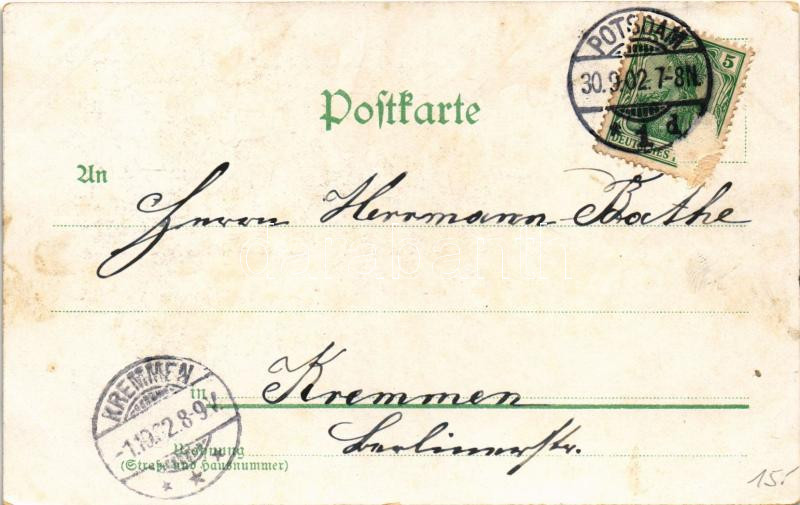 POTSDAM
30.9.02.7-8N.
* 1 d.
5
DEUTSCHES
Postkarte
An
Herrn Herrmann Bathe
in Kremmen
Berlinerstr.
Wohnung
(Straße und Hausnummer)
KREMMEN
-1.10.02.8-9V.
* * *
15.